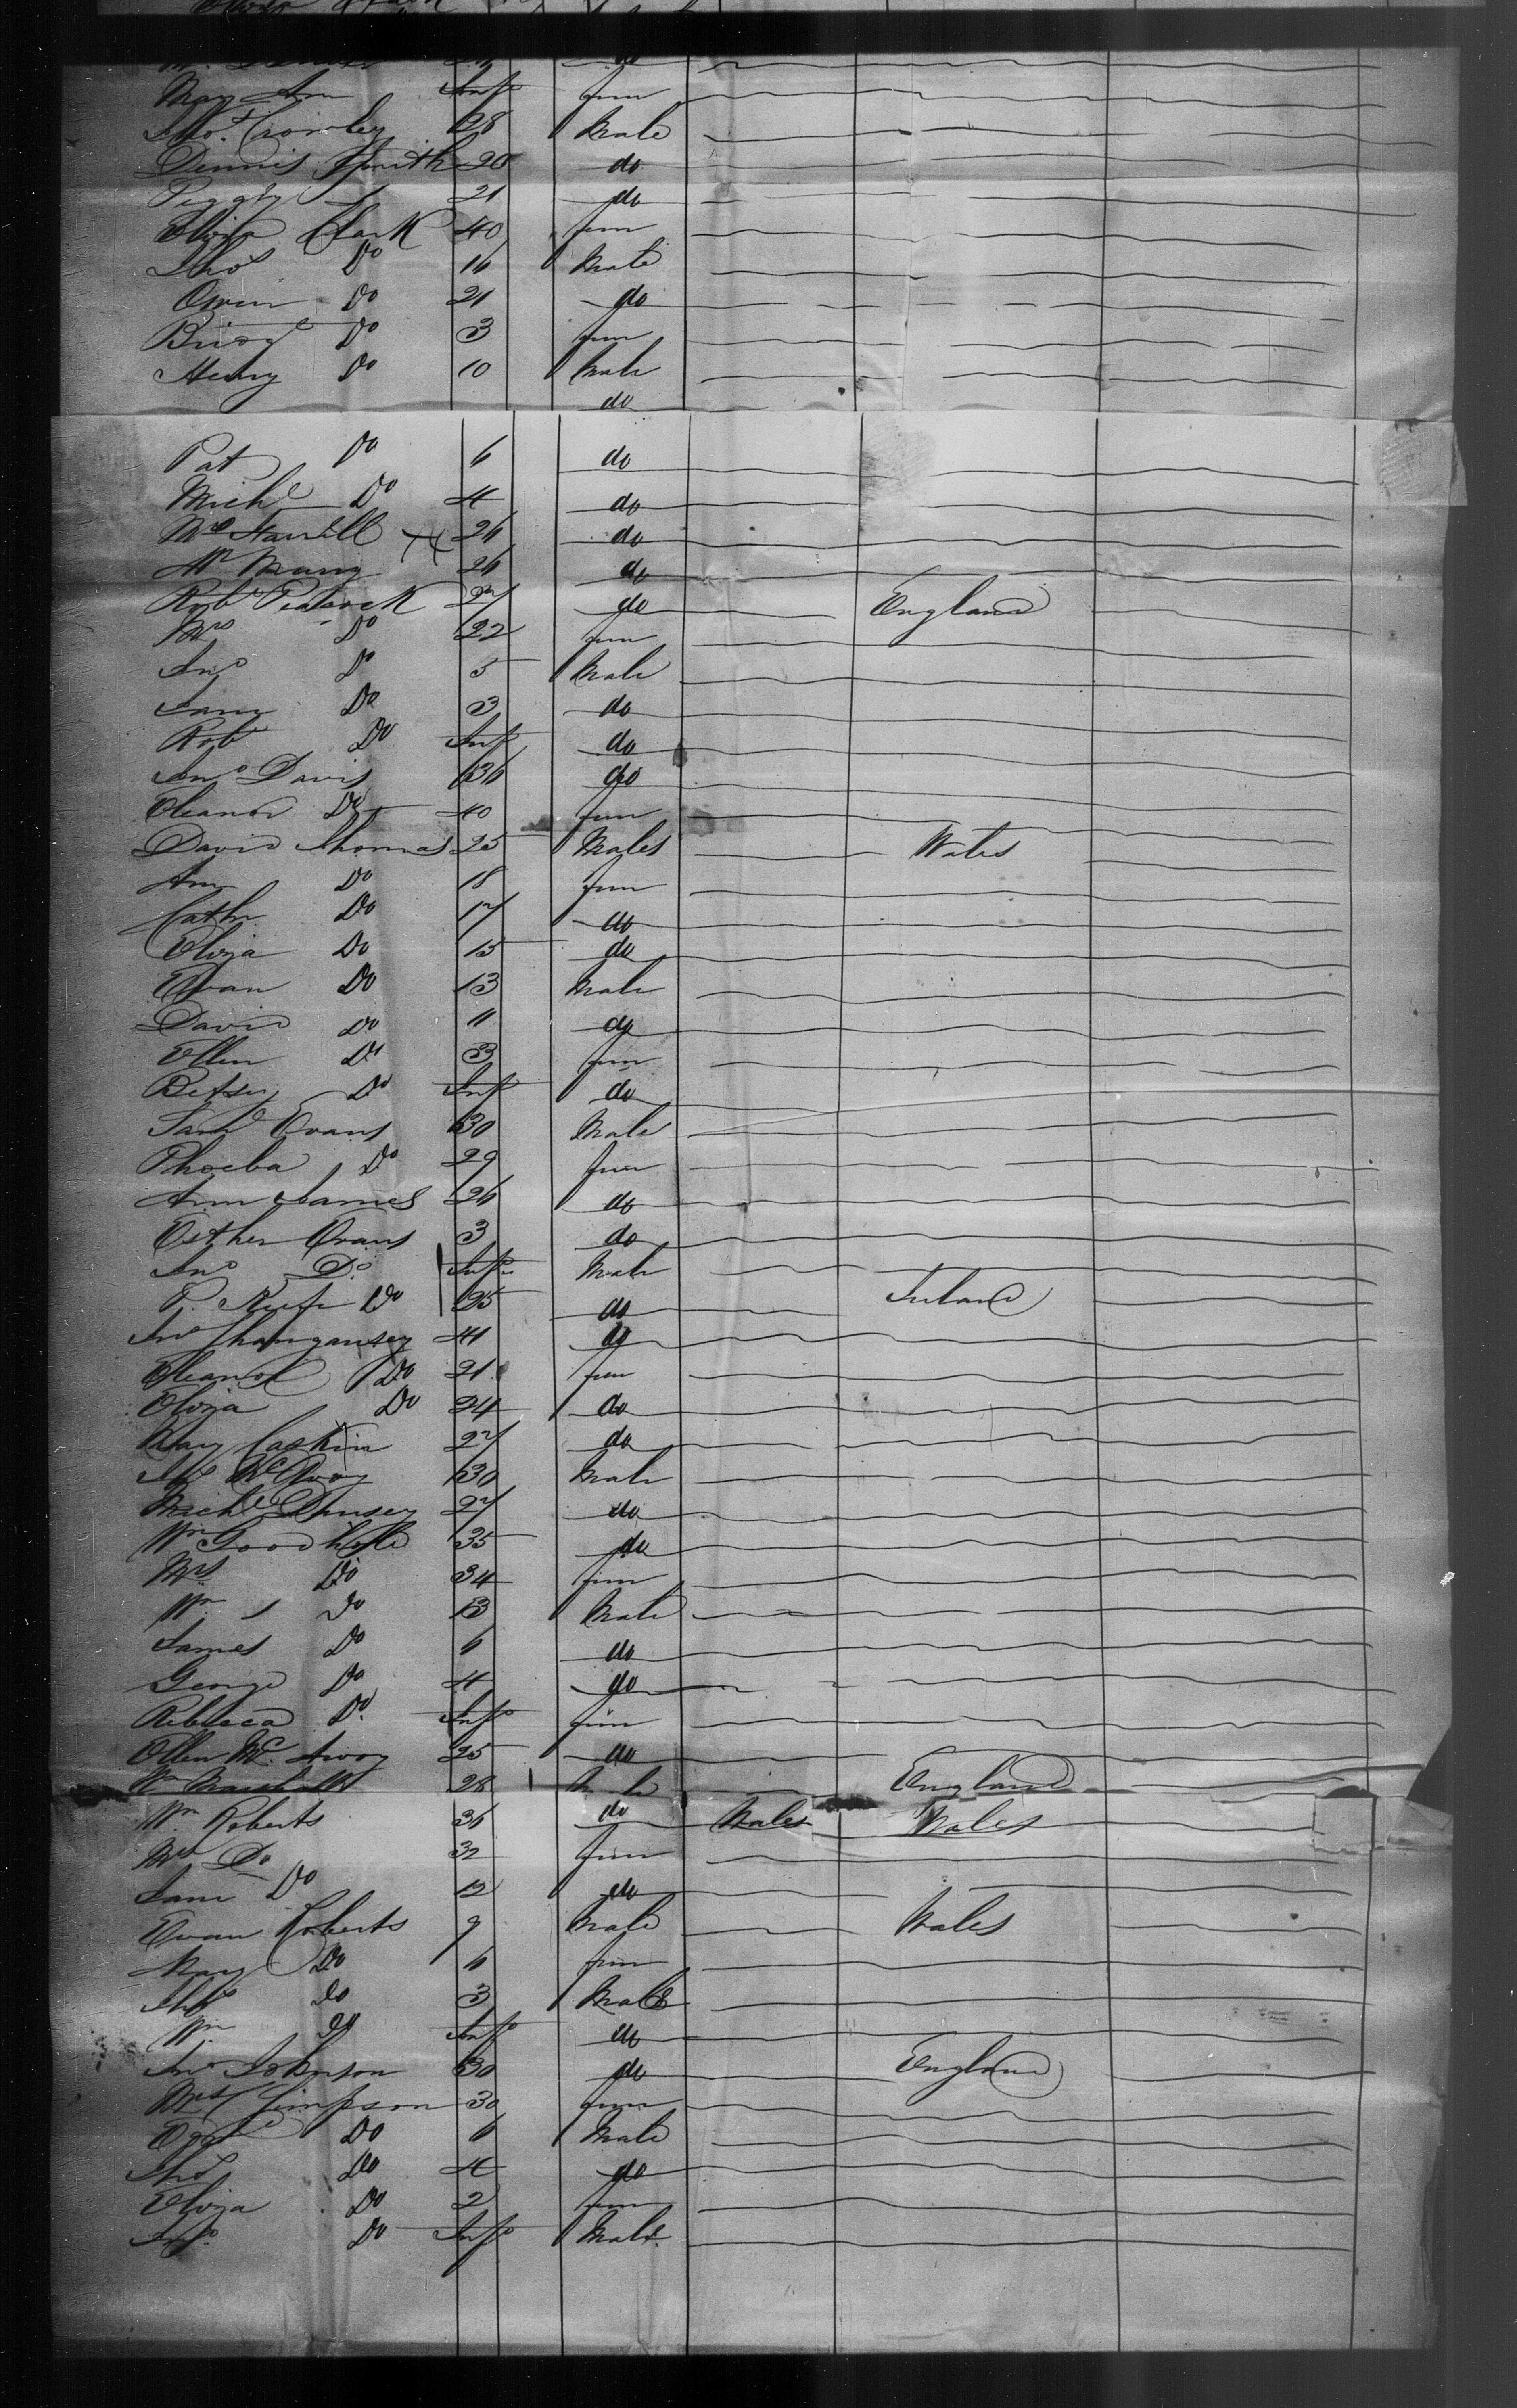 May Ann Inf fem
Thos. Crowley 28 Male
Dennis Smith 20 do
Peggy 21 do
Eliza Clark 40 fem
Thos Do 16 Male
Owen Do 21 do
Bridgt Do 3 fem
Henry Do 10 Male
do
Pat Do 6 do
Michl Do 4 do
Mrs Farrell 26 do
26 do
Robt Peacock 27 do England
Mrs Do 22 fem
Jno Do 5 Male
Sam Do 3 do
Rob Do Inf do
Jno Davis 36 do
Eleanor Do 40 fem
David Thomas 25 Males Wales
Ann Do 18 fem
Cathr Do 17 do
Eliza Do 15 do
Evan Do 13 Male
David Do 11 do
Ellen Do 3 fem
Betsey Do Inf do
Saml Evans 30 Male
Phoeba Do 29 fem
Ann James 26 do
Esther Evans 3 do
Jno Do Inf Male
P. Keefe Do 25 do Ireland
Jno 41 do
Eleanor Do 21 fem
Eliza Do 24 do
Mary Caskin 27 do
McAvoy 30 Male
Michl 27 do
Wm 35 do
Mrs Do 34 fem
Wm Do 13 Male
James Do 6 do
George Do 4 do
Rebecca Do Inf fem
Ellen Mc Avoy 25 do
Wm Marshall 28 Male England
Wm Roberts 36 do Wales Wales
Mrs Do 32 fem
Do 12 do
Evan Roberts 9 Male Wales
Mary Do 6 fem
Thos Do 3 Male
Wm Do Inf do
Jno Johnson 30 do England
Mrs Simpson 30 fem
Do 6 Male
Thos Do 4 do
Eliza Do 2 fem
Jno. Do Inf Male